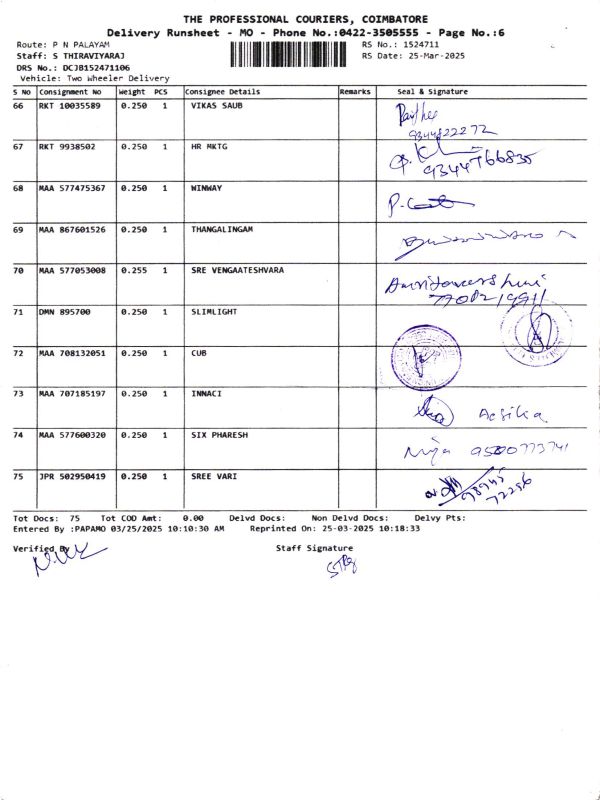 THE PROFESSIONAL COURIERS, COIMBATORE
Delivery Runsheet - MO - Phone No.:0422-3505555 - Page No.:6
Route: P N PALAYAM
RS No.: 1524711
Staff: S THIRAVIYARAJ
RS Date: 25-Mar-2025
DRS No.: DCJB152471106
Vehicle: Two Wheeler Delivery
S No Consignment No Weight PCS Consignee Details Remarks Seal & Signature
66 RKT 10035589 0.250 1 VIKAS SAUB
9344822272
67 RKT 9938502 0.250 1 HR MKTG
9344766835
68 MAA 577475367 0.250 1 WINWAY
69 MAA 867601526 0.250 1 THANGALINGAM
70 MAA 577053008 0.255 1 SRE VENGAATESHVARA
71 DMN 895700 0.250 1 SLIMLIGHT
72 MAA 708132051 0.250 1 CUB
73 MAA 707185197 0.250 1 INNACI
74 MAA 577600320 0.250 1 SIX PHARESH
9500773741
75 JPR 502950419 0.250 1 SREE VARI
98945
72256
Tot Docs: 75 Tot COD Amt: 0.00 Delvd Docs: Non Delvd Docs: Delvy Pts:
Entered By :PAPAMO 03/25/2025 10:10:30 AM Reprinted On: 25-03-2025 10:18:33
Verified By
Staff Signature